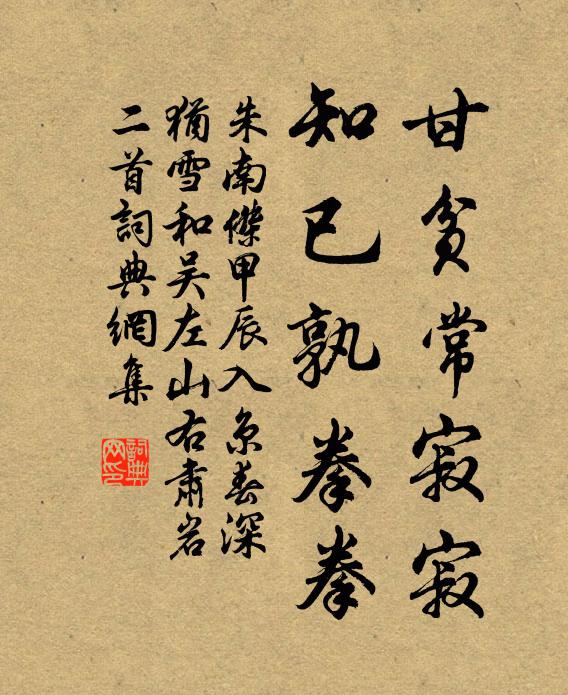 甘貧常寂寂
知已孰拳拳
朱南傑甲辰入京春深
猶雪和吴左山右肅岩
二首詞典網集
詞典
网印